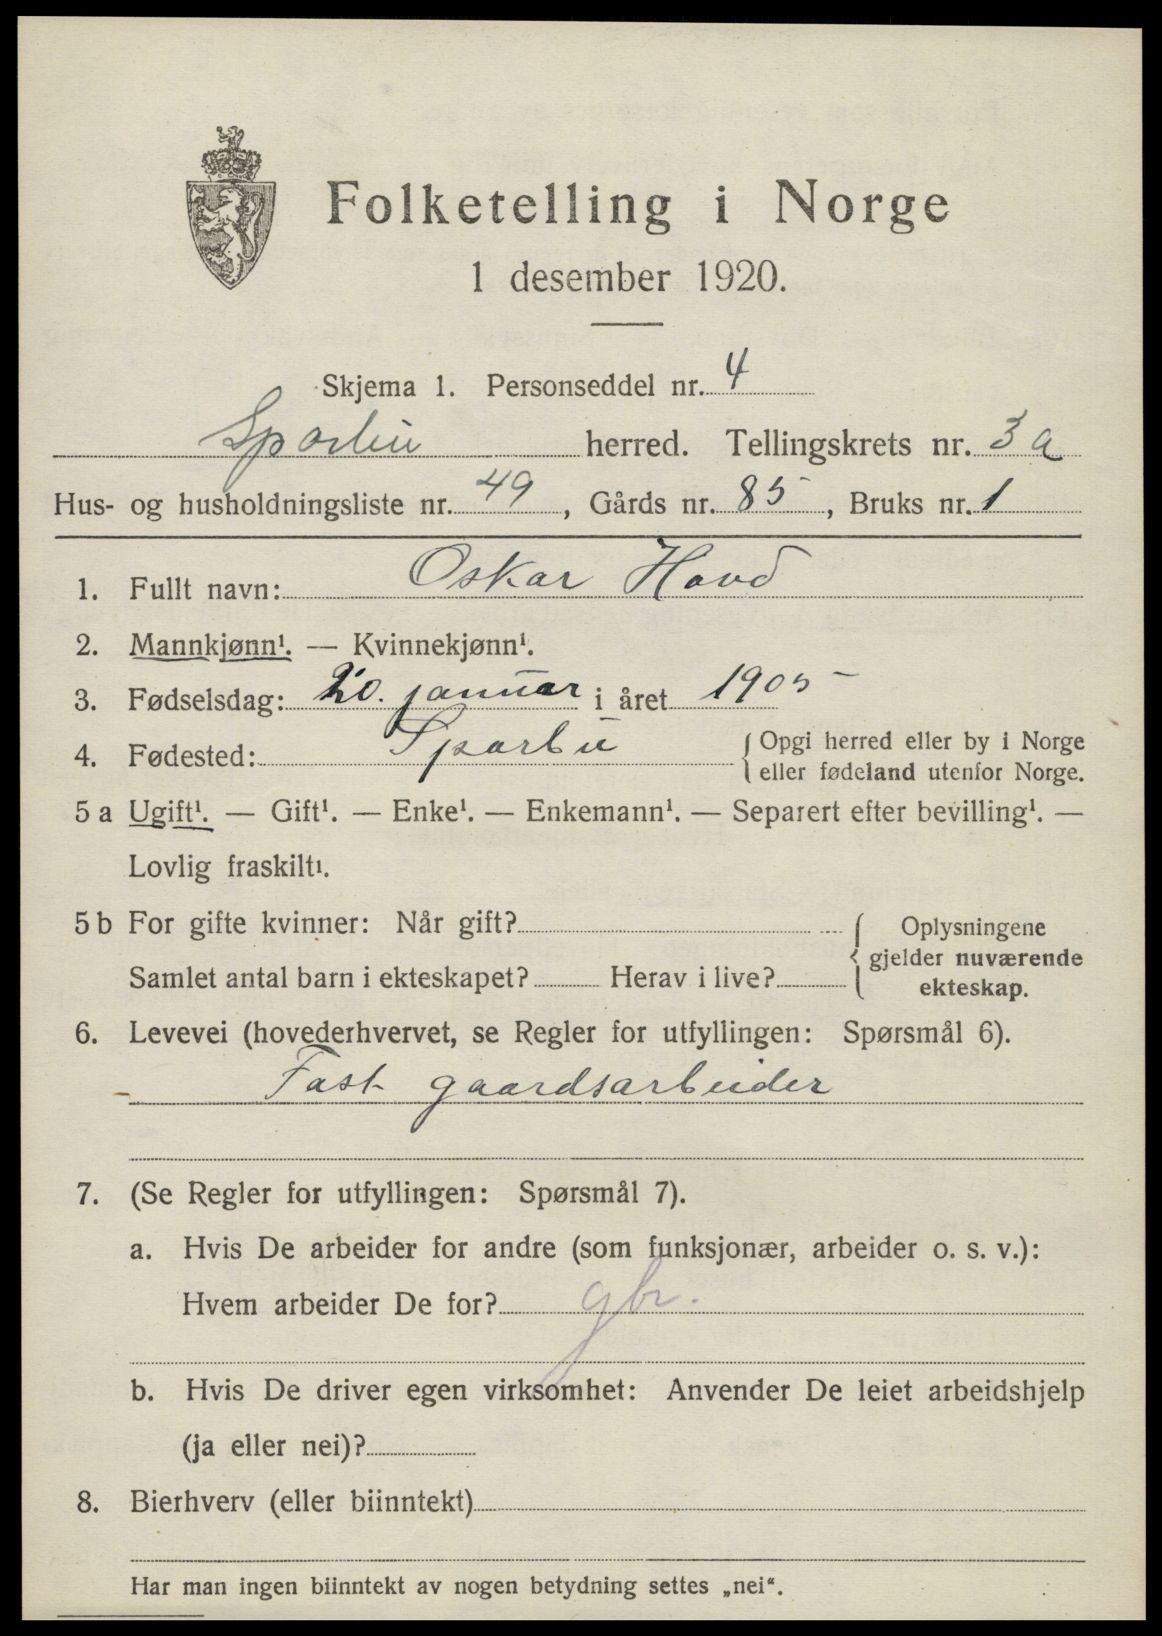 Folketelling i Norge
1 desember 1920.
Skjema 1. Personseddel nr. 4
Sparbu herred. Tellingskrets nr. 3 a
Hus- og husholdningsliste nr. 49, Gårds nr. 85, Bruks nr. 1
1. Fullt navn: Oskar Havd
2. Mannkjønn¹. — Kvinnekjønn¹.
3. Fødselsdag: 20. januar i året 1905
4. Fødested: Sparbu { Opgi herred eller by i Norge
eller fødeland utenfor Norge.
5 a Ugift¹. — Gift¹. — Enke¹. — Enkemann¹. — Separert efter bevilling¹. —
Lovlig fraskilt¹.
5 b For gifte kvinner: Når gift? { Oplysningene
gjelder nuværende
ekteskap.
Samlet antal barn i ekteskapet? Herav i live?
6. Levevei (hovederhvervet, se Regler for utfyllingen: Spørsmål 6).
Fast gaardsarbeider
7. (Se Regler for utfyllingen: Spørsmål 7).
a. Hvis De arbeider for andre (som funksjonær, arbeider o. s. v.):
Hvem arbeider De for? gbr.
b. Hvis De driver egen virksomhet: Anvender De leiet arbeidshjelp
(ja eller nei)?
8. Bierhverv (eller biinntekt)
Har man ingen biinntekt av nogen betydning settes „nei“.